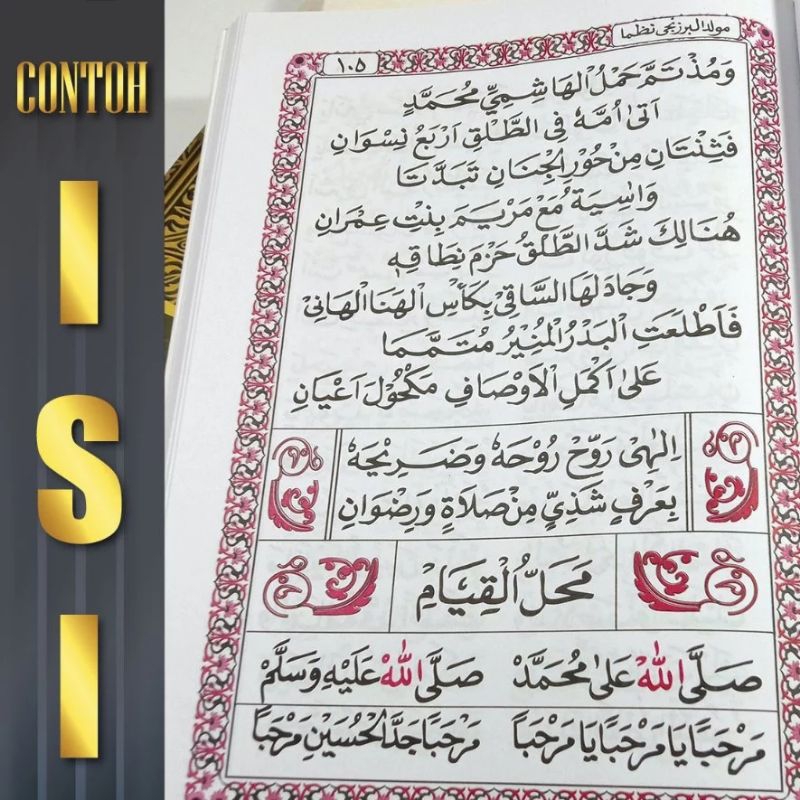 CONTOH
I
S
I
مولد البرزنجى نظما
١٠٥
وَمُذْتَمَّ حَمْلُ الْهَاشِمِيِّ مُحَمَّدٍ
اَتٰى اُمَّهٗ فِى الطَّلْقِ اَرْبَعُ نِسْوَانِ
فَثِنْتَانِ مِنْ حُوْرِ الْجِنَانِ تَبَدَّتَا
وَاٰسِيَةُ مَعْ مَرْيَمَ بِنْتِ عِمْرَانِ
هُنَالِكَ شَدَّ الطَّلْقُ حَزْمَ نِطَاقِهٖ
وَجَادَ لَهَا السَّاقِيْ بِكَأْسِ الْهَنَا الْهَانِيْ
فَاَطْلَعَتِ الْبَدْرُ الْمُنِيْرُ مُتَمَّمَا
عَلٰى اَكْمَلِ الْاَوْصَافِ مَكْحُوْلَ اَعْيَانِ
اِلٰهِيْ رَوِّحْ رُوْحَهٗ وَضَرِيْحَهٗ
بِعَرْفٍ شَذِيٍّ مِنْ صَلَاةٍ وَرِضْوَانِ
مَحَلُّ الْقِيَامِ
صَلَّى اللّٰهُ عَلٰى مُحَمَّدْ صَلَّى اللّٰهُ عَلَيْهِ وَسَلَّمْ
مَرْحَبًا يَا مَرْحَبًا يَا مَرْحَبًا مَرْحَبًا جَدَّ الْحُسَيْنِ مَرْحَبًا